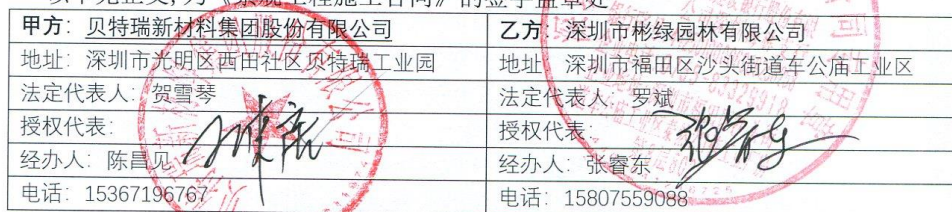 以下无正文，为《景观工程施工合同》的签字盖章处
甲方：贝特瑞新材料集团股份有限公司
乙方：深圳市彬绿园林有限公司
地址：深圳市光明区西田社区贝特瑞工业园
地址：深圳市福田区沙头街道车公庙工业区
法定代表人：贺雪琴
法定代表人：罗斌
授权代表：
授权代表：
经办人：陈昌见
经办人：张睿东
电话：15367196767
电话：15807559088